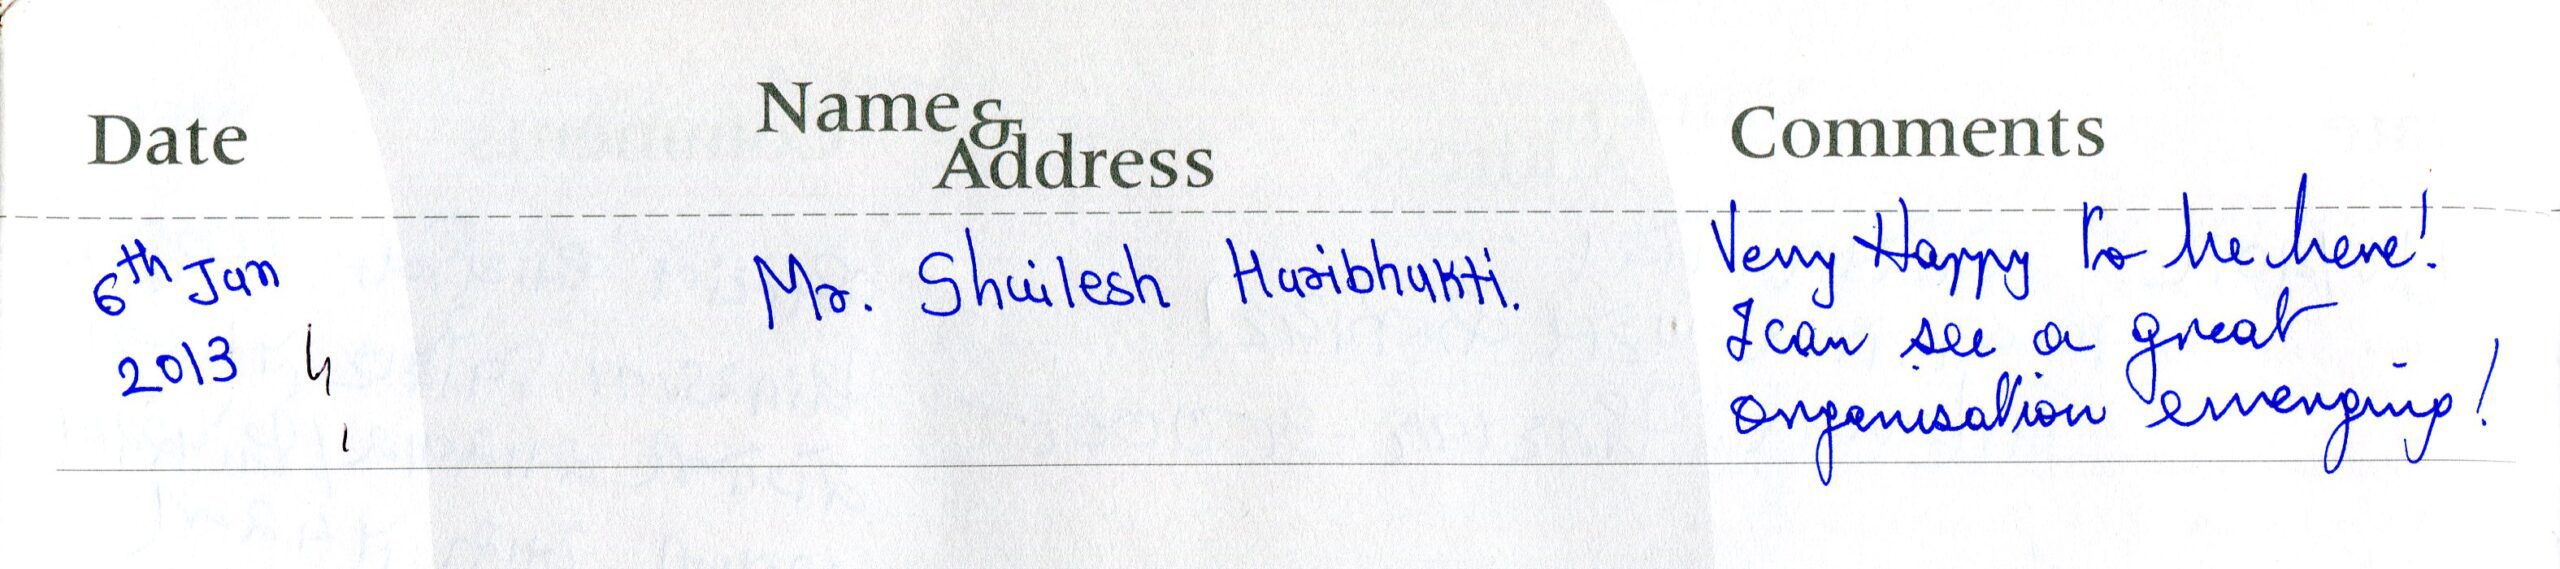 Date
Name &
Address
Comments
6th Jan
2013
Mr. Shailesh Haribhakti.
Very Happy to be here!
I can see a great
organisation emerging!